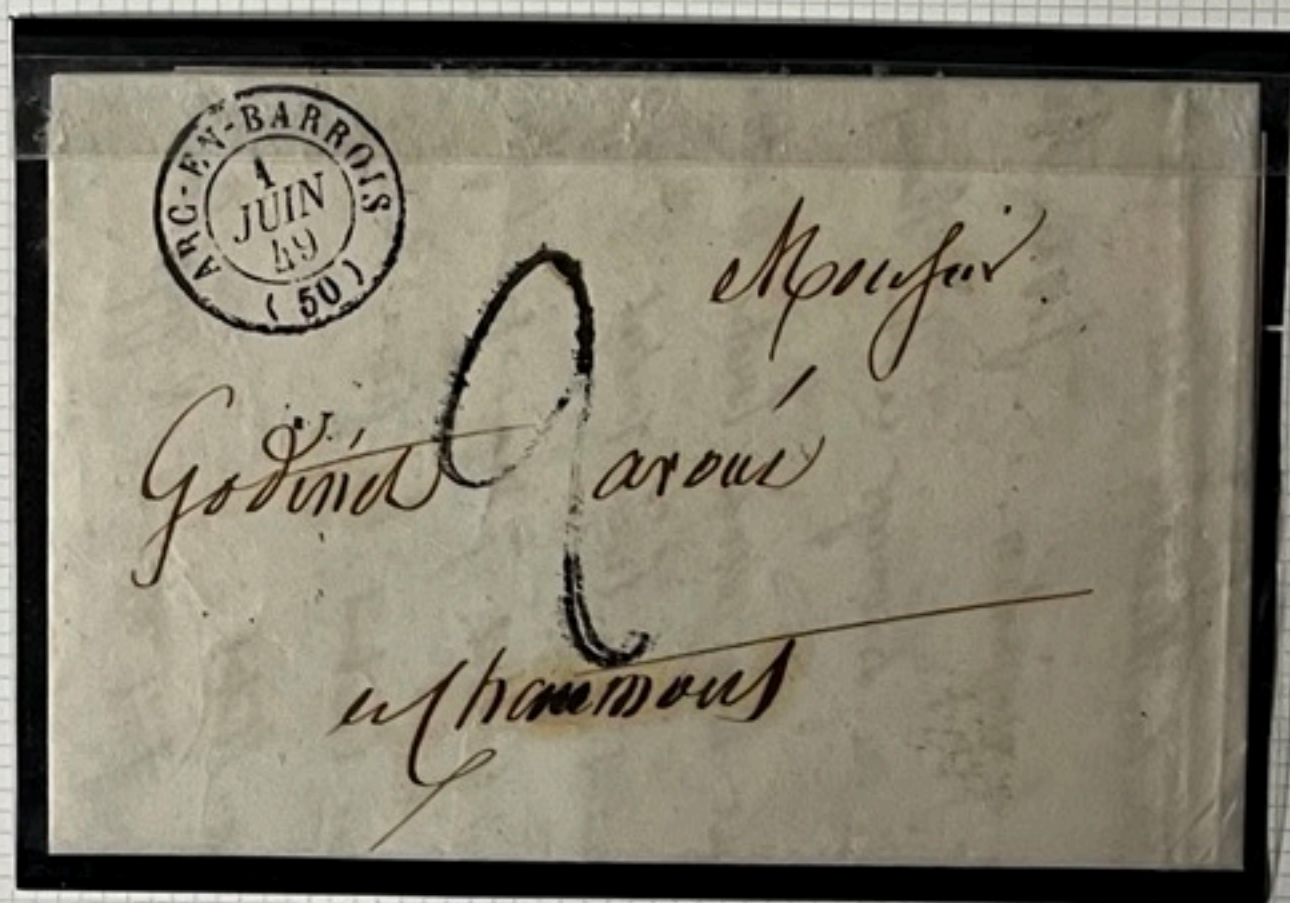 ARC-EN-BARROIS
1
JUIN
49
(50)
2
Monsieur
Godinet avoué
a Chaumont